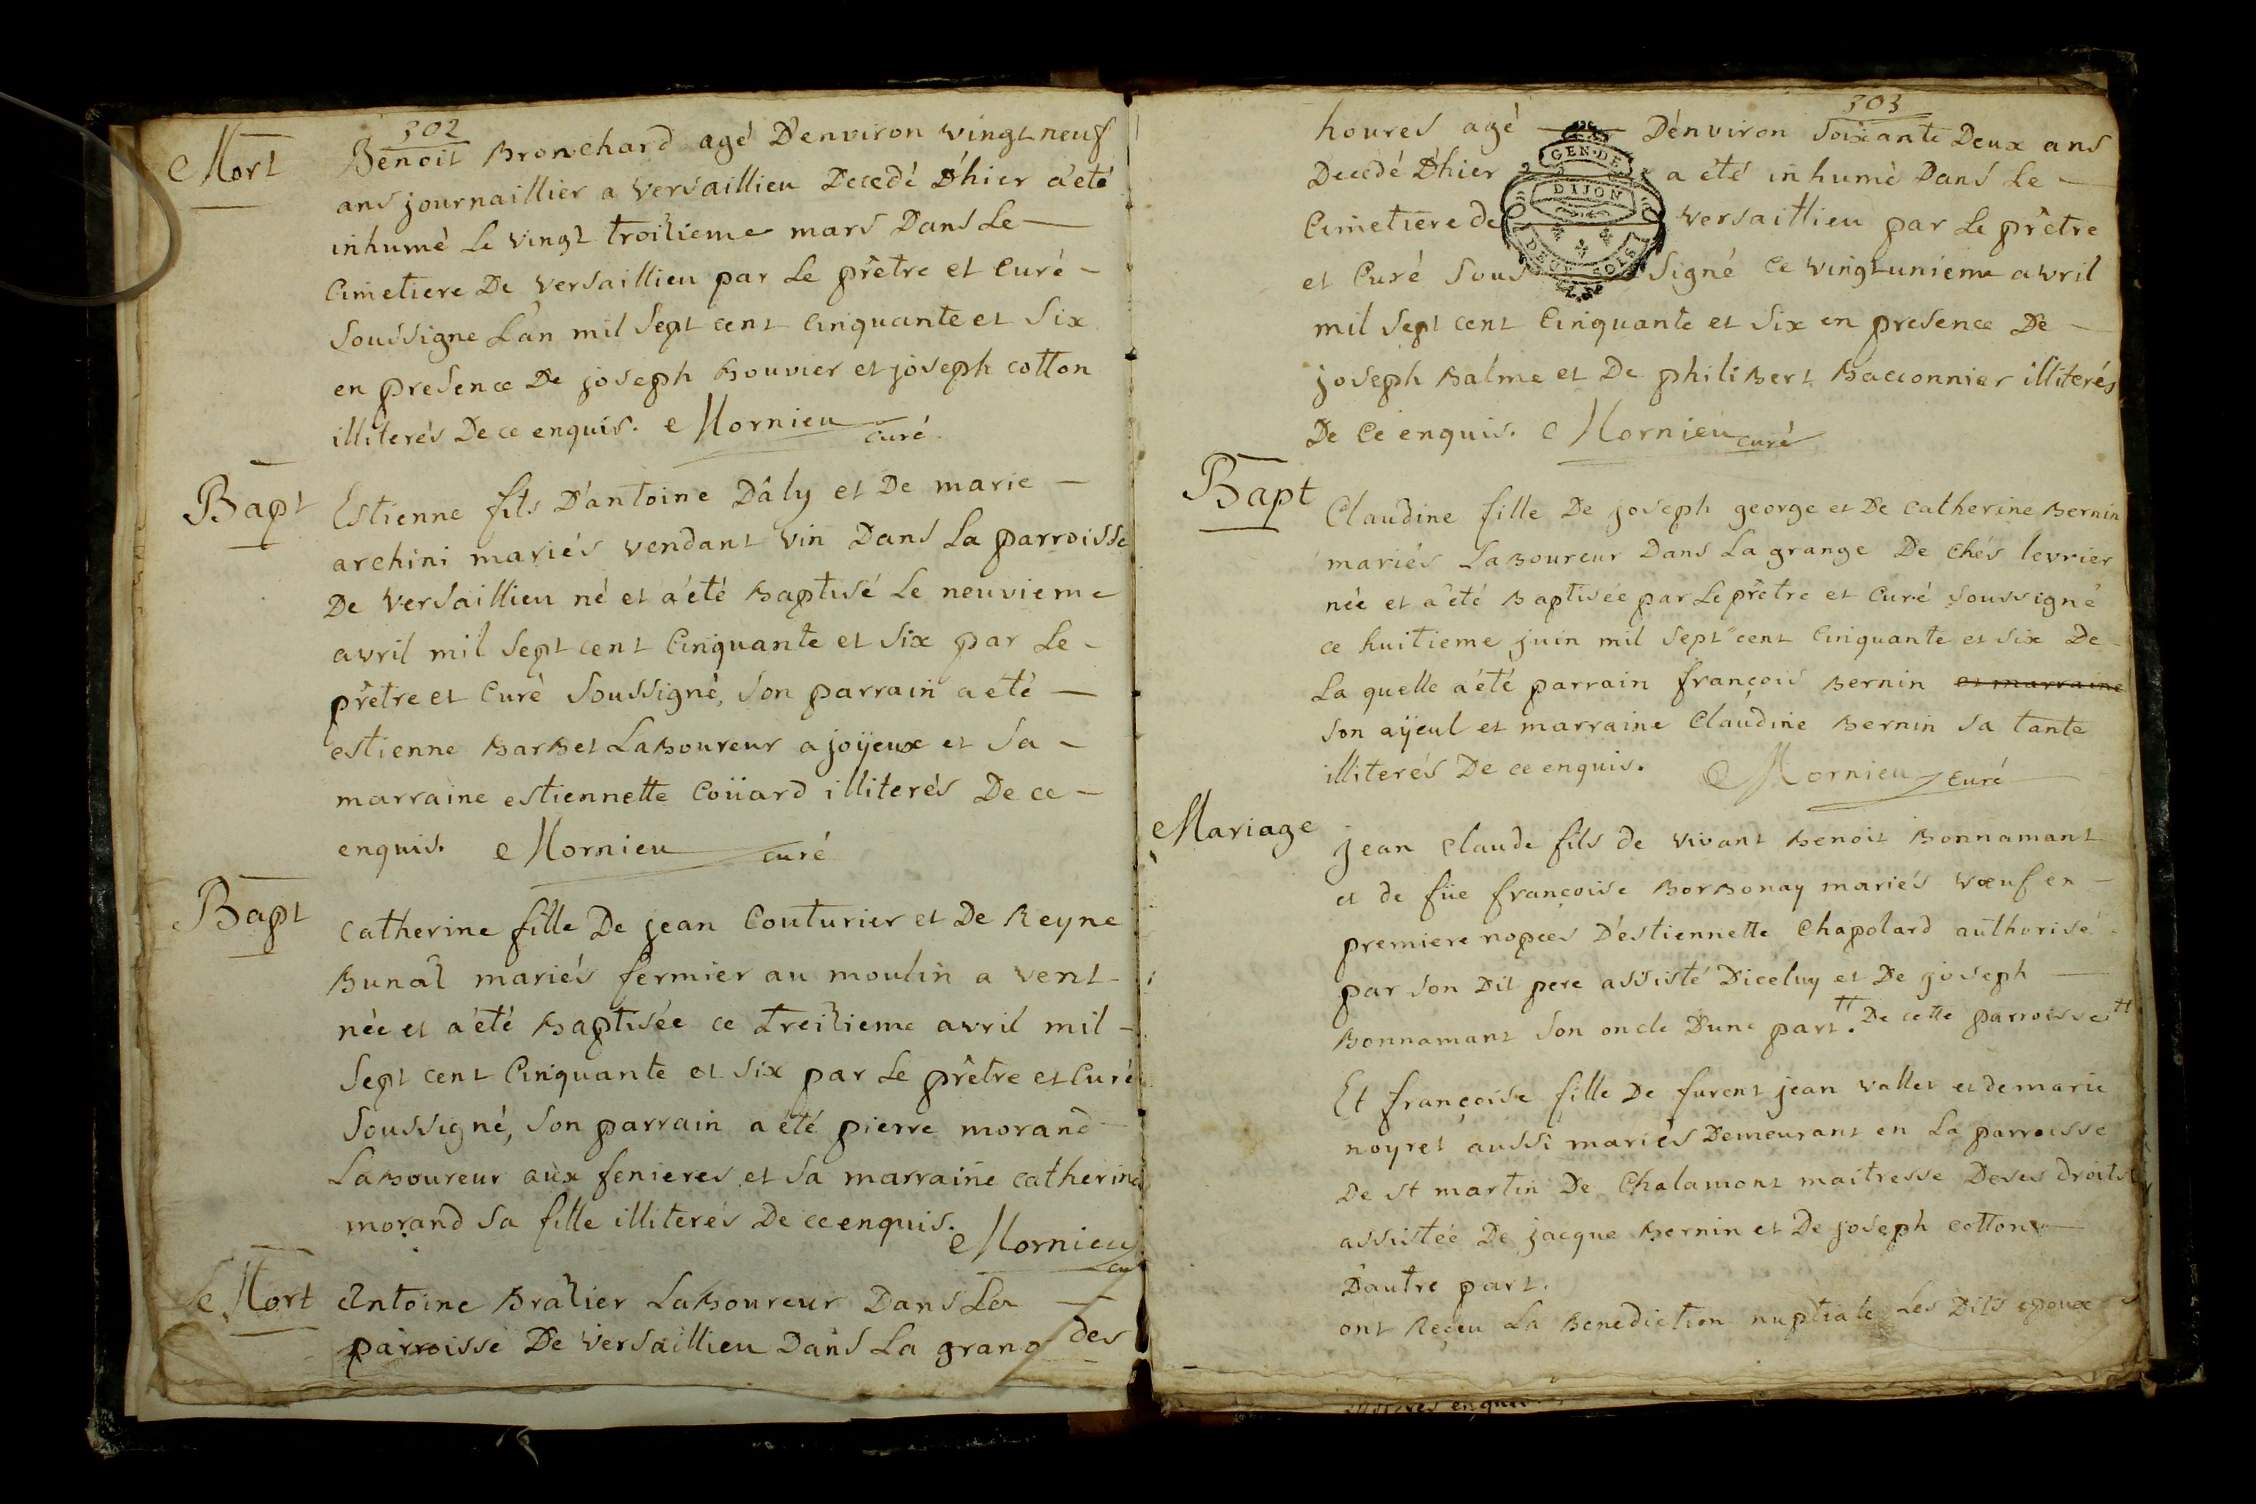 302
Mort
Benoit Bronchard agé D'environ vingt neuf
ans journaillier a versaillieu Decedé D'hier a été
inhumé Le vingt troisieme mars Dans Le
Cimetiere De versaillieu par Le prêtre et Curé
Soussigne L'an mil Sept cent Cinquante et Six
en presence De joseph Bouvier et joseph cotton
illiterés De ce enquis. Mornieu curé
Bapt
Estienne fils D'antoine Dâly et De marie
archini mariés vendant vin Dans La parroisse
De versaillieu né et a été Baptisé Le neuvieme
avril mil Sept cent Cinquante et Six par Le
prêtre et Curé Soussigné, Son parrain a eté
estienne BarBet LaBoureur a joÿeux et Sa
marraine estiennette Coüard illiterés De ce
enquis. Mornieu curé
Bapt
Catherine fille De jean Couturier et De Reyne
Bunat mariés fermier au moulin a vent
née et a été Baptisée ce treisieme avril mil
Sept cent Cinquante et Six par Le prêtre et Curé
Soussigné, Son parrain a été pierre morand
LaBoureur aux fenieres et Sa marraine catherine
morand Sa fille illiterés De ce enquis.
Mornieu
Cu
Mort
Antoine Brasier LaBoureur Dans La
parroisse De versaillieu Dans La grang des
303
houres agé D'environ Soixante Deux ans
Decedé D'hier a été inhumé Dans Le
Cimetiere de versaillieu par Le prêtre
et Curé Sous Signé Ce vingt unieme avril
mil Sept cent Cinquante et Six en presence De
joseph Balme et De philiBert Bacconnier illiterés
De Ce enquis. Mornieu curé
GEN. DE
DIJON
DEUX SOLS
Bapt
Claudine fille De joseph george et De catherine Bernin
mariés LaBoureur Dans La grange De Chés levrier
née et a été Baptisée par Le prêtre et Curé Soussigné
ce huitieme juin mil Sept cent Cinquante et Six De
La quelle a été parrain françois Bernin et marraine
Son aÿeul et marraine Claudine Bernin Sa tante
illiterés De ce enquis. Mornieu Curé
Mariage
jean Claude fils de vivant Benoit Bonnamant
et de füe françoise BorBonay mariés vœuf en
premiere nopces D'estiennette Chapolard authorisé
par Son Dit pere assisté Diceluy et De joseph
Bonnamant Son oncle D'une part. tt De cette parroisse tt
Et françoise fille De furent jean vallet et de marie
noyret aussi mariés Demeurant en La parroisse
De St martin De Chalamont maitresse De ses droits
assistée De jacque Bernin et De joseph cotton
D'autre part.
ont Reçeu La Benediction nuptiale Les Dits epoux
enquis